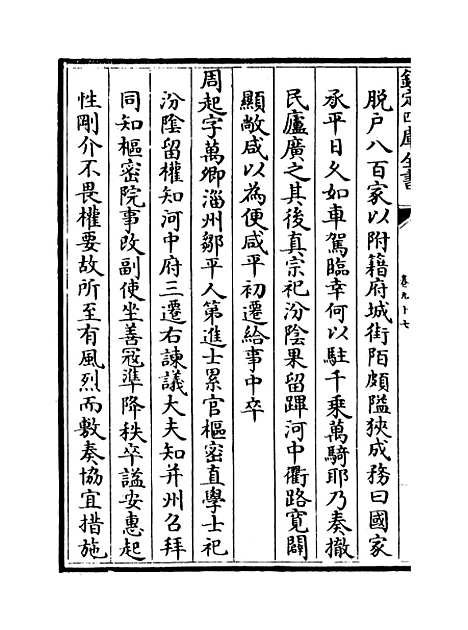 欽定四庫全書
卷九十七
脱户八百家以附籍府城街陌頗隘狹成務曰國家
承平日久如車駕臨幸何以駐千乘萬騎耶乃奏撤
民廬廣之其後真宗祀汾陰果留蹕河中衢路寛闢
顯敞咸以為便咸平初遷給事中卒
周起字萬卿淄州鄒平人第進士累官樞密直學士祀
汾陰留權知河中府三遷右諫議大夫知并州召拜
同知樞密院事改副使坐善寇準降秩卒諡安惠起
性剛介不畏權要故所至有風烈而敷奏協宜措施